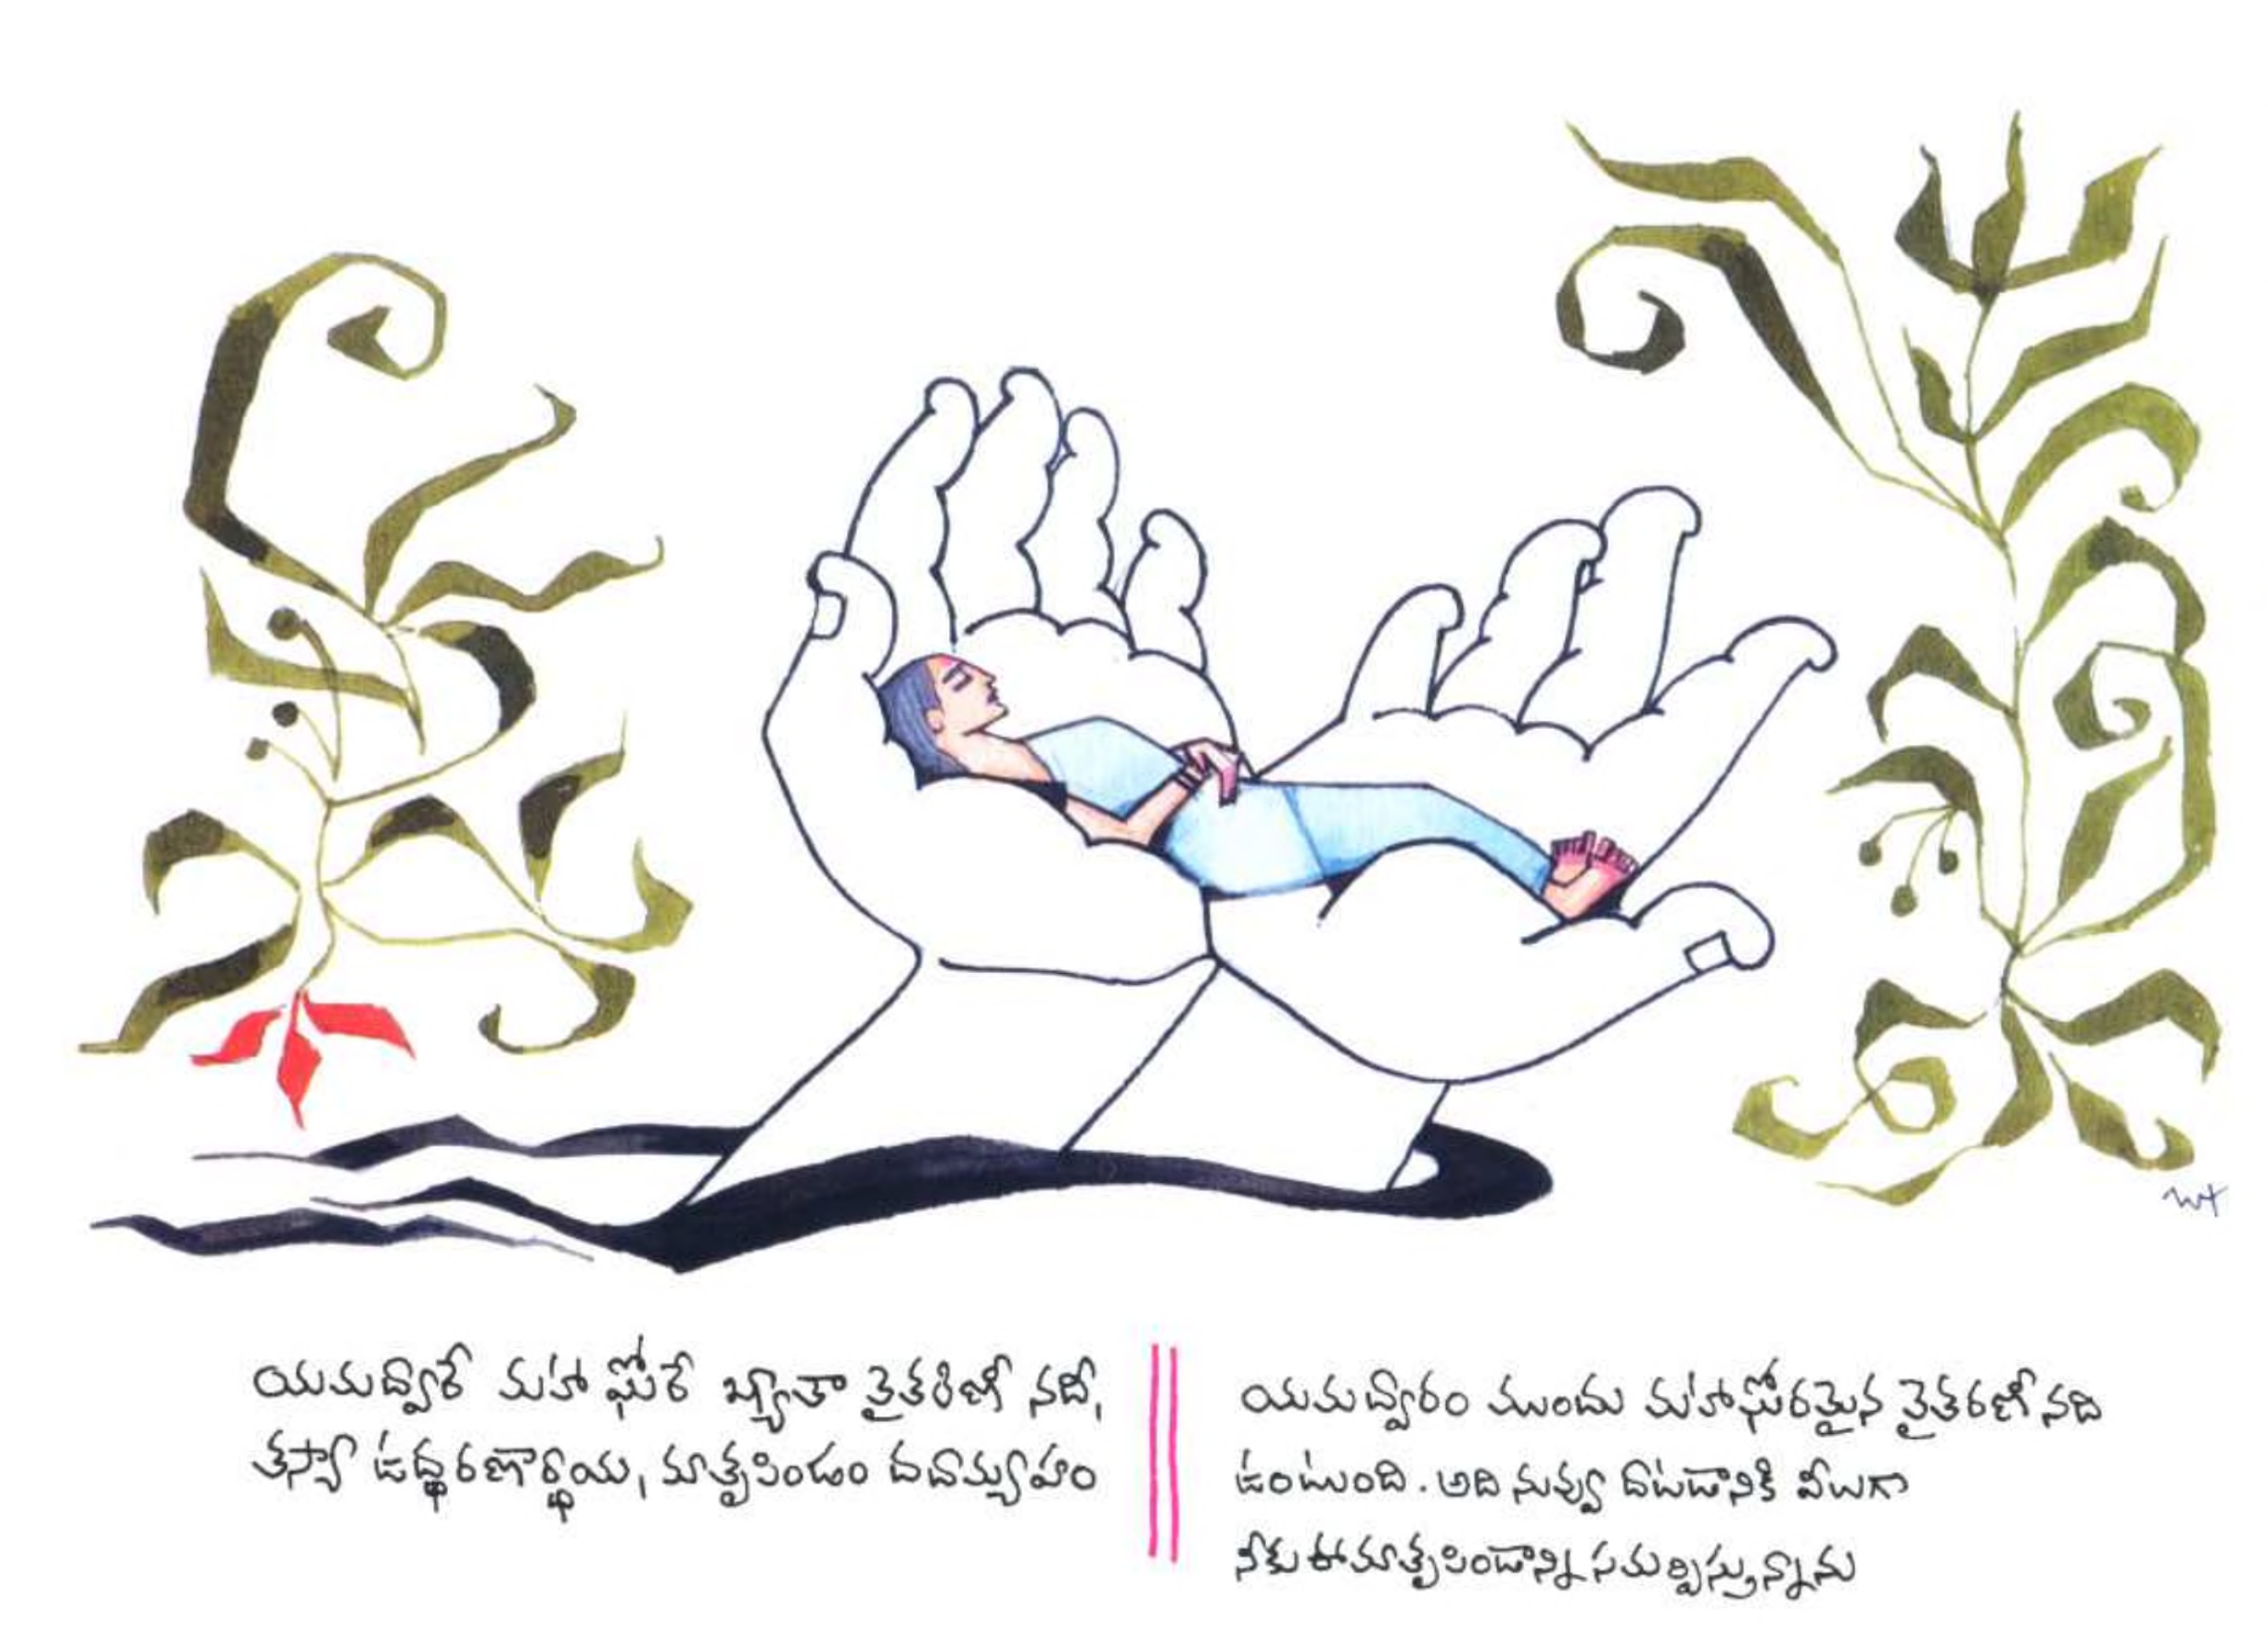 యమద్వారే మహా ఘోరే ఖ్యాతా వైతరిణీ నదీ,
తస్యా ఉద్ధరణార్థాయ, మాతృపిండం దదామ్యహం
యమద్వారం ముందు మహాఘోరమైన వైతరణీ నది
ఉంటుంది. అది నువ్వు దాటడానికి వీలుగా
నీకు ఈ మాతృపిండాన్ని సమర్పిస్తున్నాను